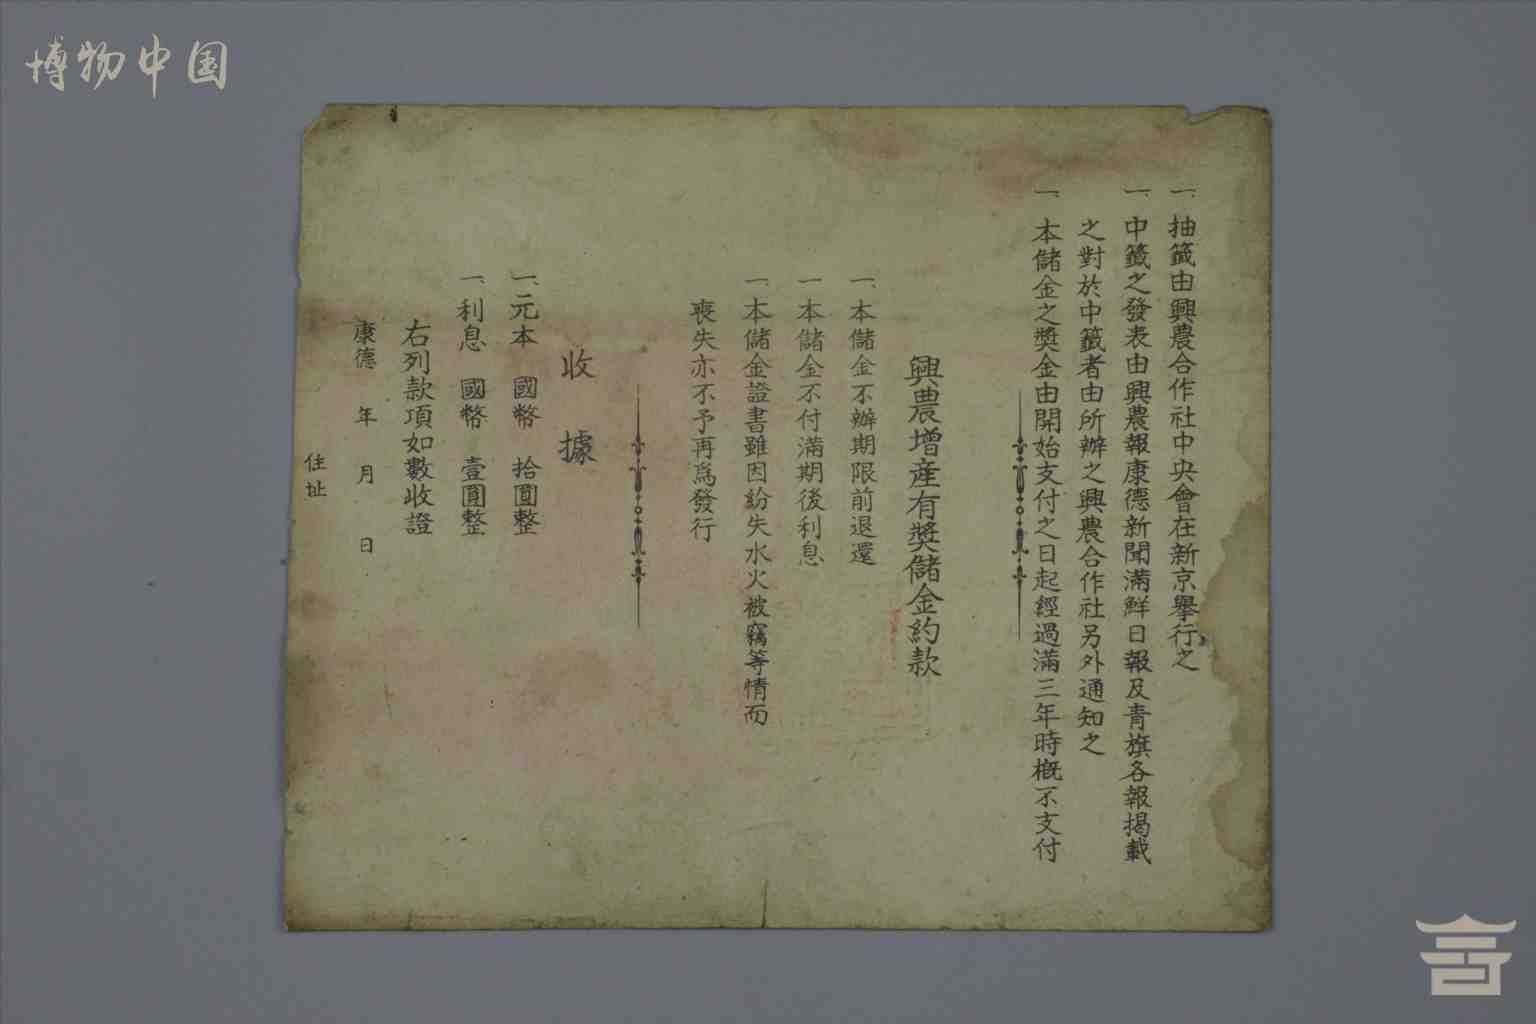 博物中国
一、抽籤由興農合作社中央會在新京舉行之
一、中籤之發表由興農報康德新聞滿鮮日報及青旗各報揭載
之對於中籤者由所辦之興農合作社另外通知之
一、本儲金之奬金由開始支付之日起經過滿三年時概不支付
興農增産有奬儲金約款
一、本儲金不辦期限前退還
一本儲金不付滿期後利息
一、本儲金證書雖因紛失水火被竊等情而
喪失亦不予再爲發行
收據
一、元本 國幣 拾圓整
一、利息 國幣 壹圓整
右列款項如數收證
康德 年 月 日
住址